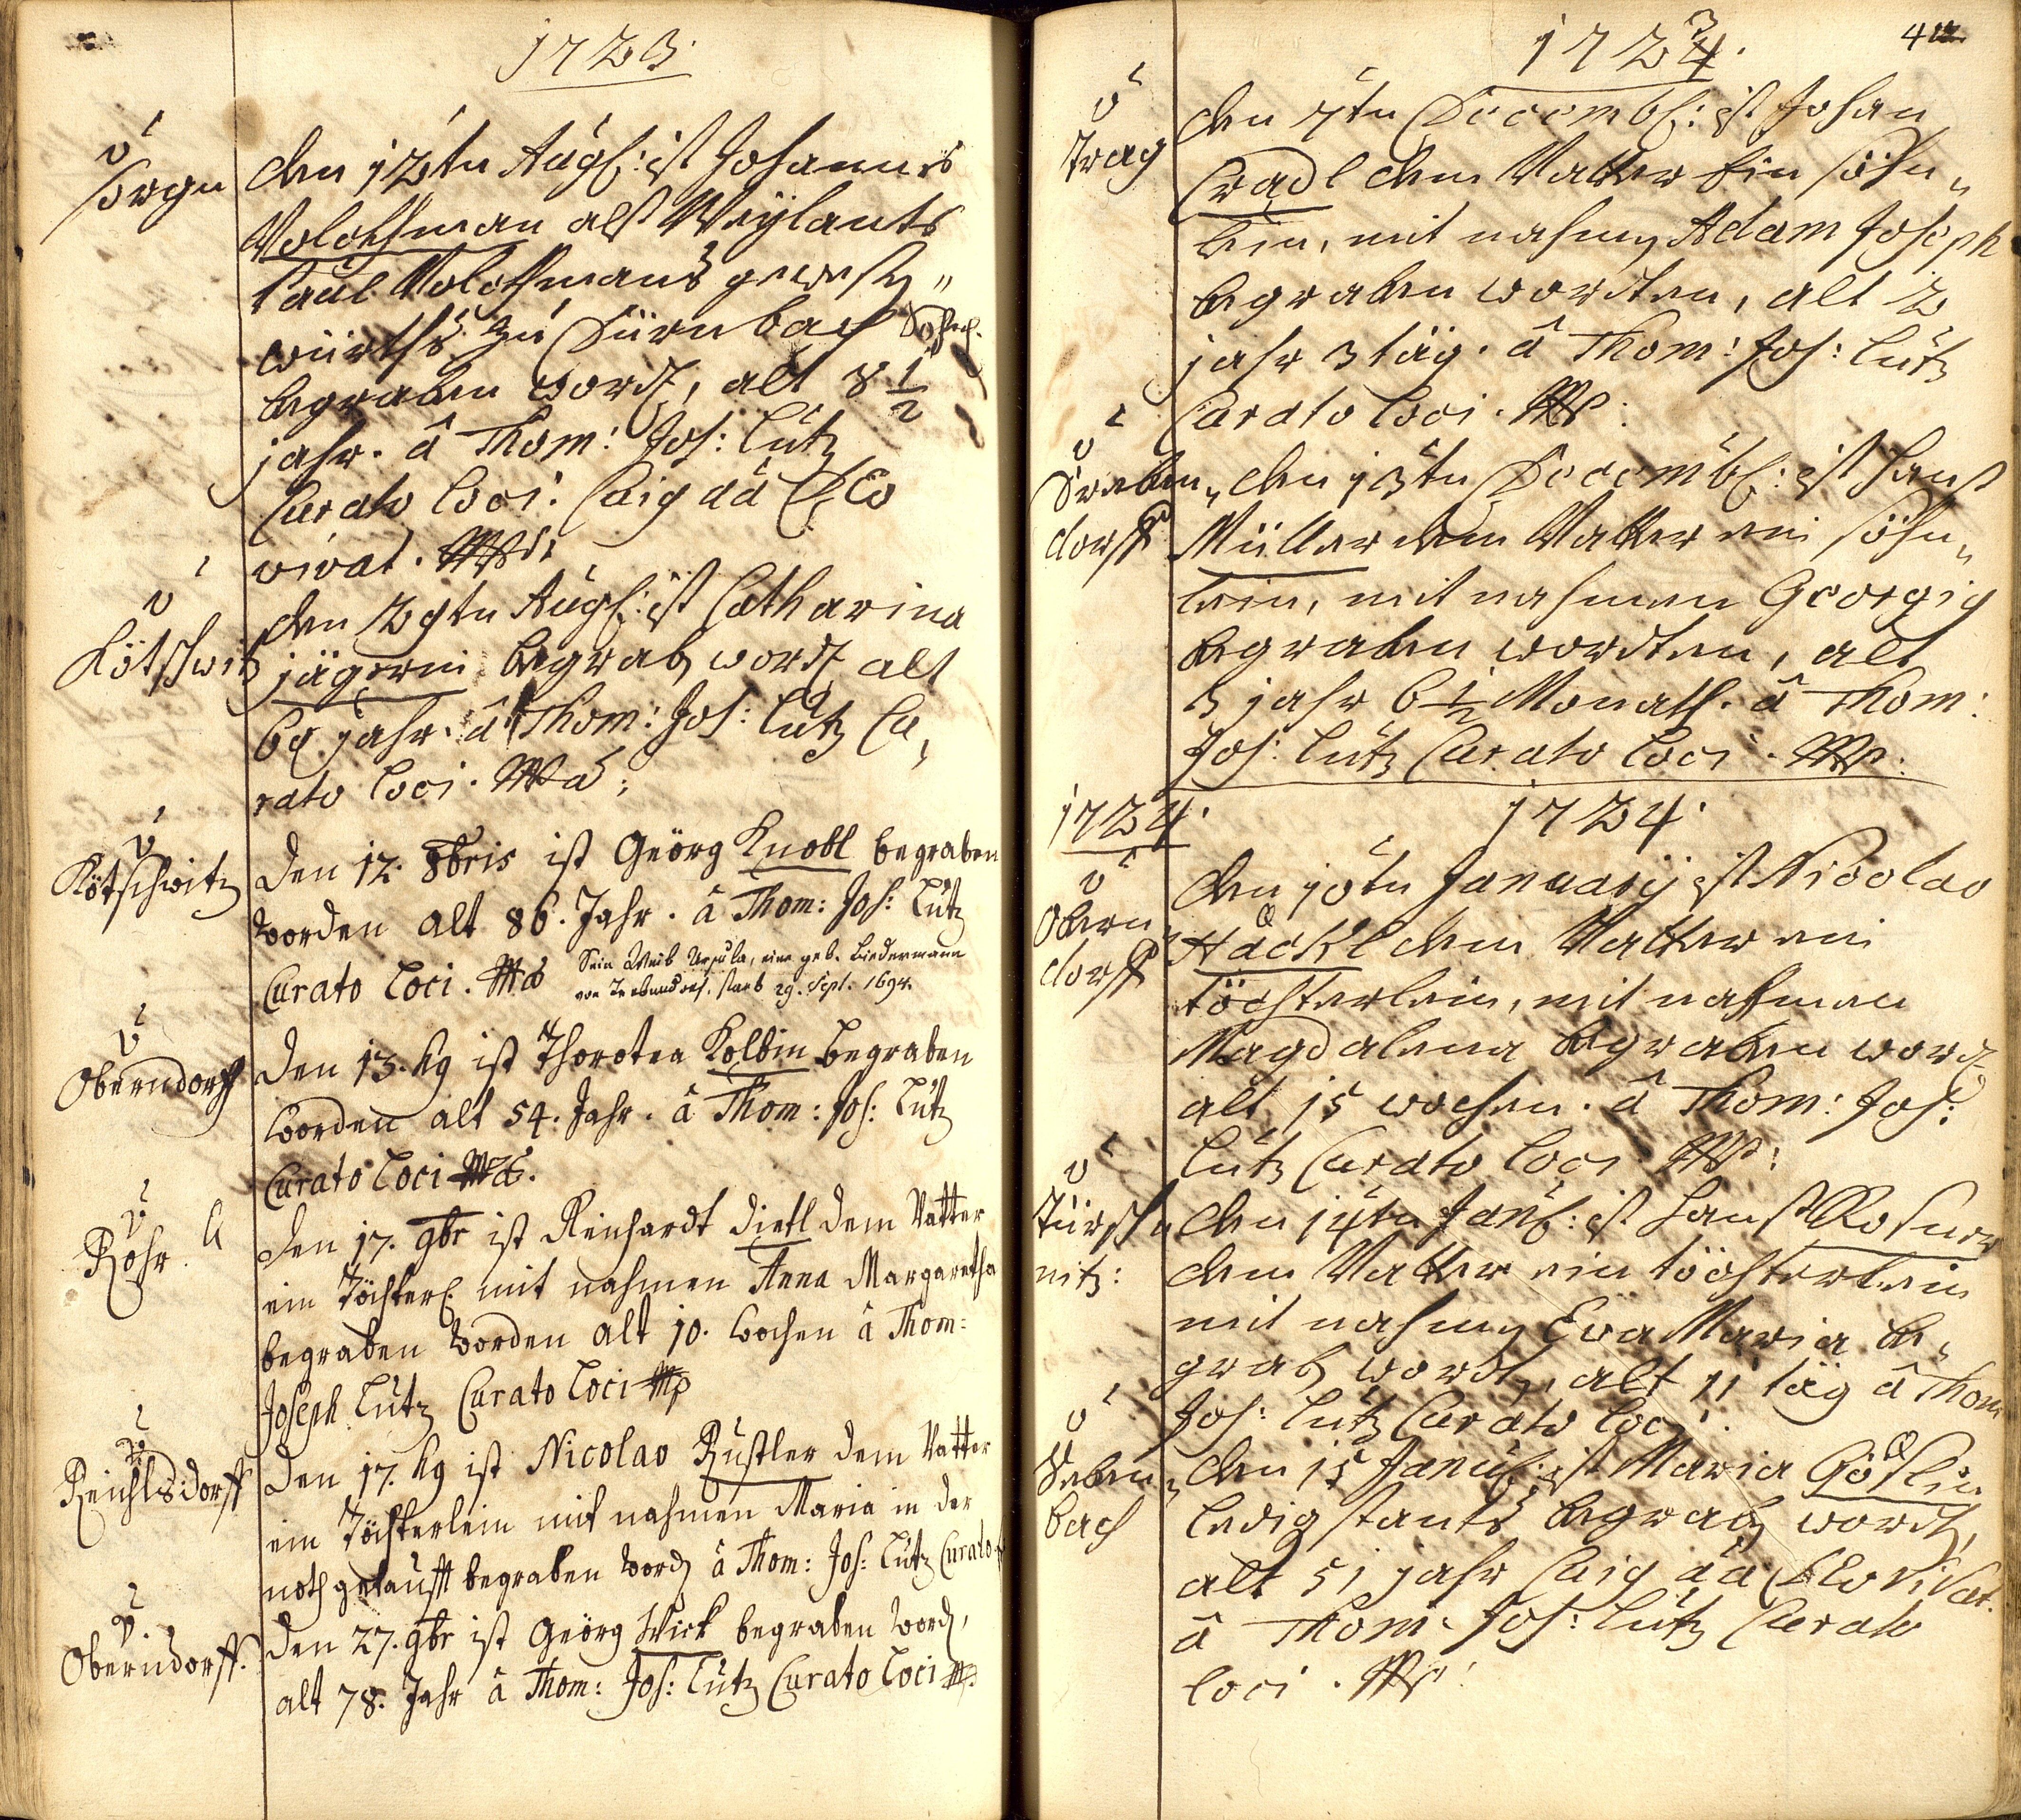 1723.
v
Sorgn
den 12ten Aug: ist Johannes
Woldtman als Weylants
Paul Woldtmans gewesten
würths zu Dürnbach Sohn
begraben wordt, alt 8 1/2
jahr. â Thom: Jos: Lutz
Curato Loci.
vivat. Mp
v
Kötschwitz
den 29ten Aug: ist Catharina
jägerin begrab wordt alt
69 jahr. â Thom: Jos: Lutz Cu,
rato Loci.
v
Kötschwitz
Den 12. 8bris ist Geörg Knobl begraben
worden alt 86. Jahr. â Thom: Jos: Lutz
Curato Loci.
Sein Weib Ursula, eine geb. Biedermann
von Trebendorf. starb 29. Sept. 1694.
v
Oberndorff
Den 13. hg ist Thorotea Kolbin begraben
worden alt 54. Jahr. â Thom: Jos: Lutz
Curato Loci
v
Rohr.
Den 17. 9br ist Reichardt Dietl dem Vatter
ein Töchterl mit nahmen Anna Margaretha
begraben worden alt 10. wochen â Thom:
Joseph Lutz Curato Loci Mp
v
Reichlsdorff
Den 17. hg ist Nicolao Rustler dem Vatter
ein Töchterlein mit nahmen Maria in der
noth getaufft begraben word â Thom: Jos: Lutz Curato
v
Oberndorff.
Den 27. 9br ist Geörg Wirk begraben word,
alt 78. Jahr â Thom: Jos: Lutz Curato Loci
1723.
4
v
Trag
den 7ten Decemb: ist Johan
Cradl dem Vatter Ein söhn,,
lein, mit nahmen Adam Joseph
begraben wordten, alt 2
jahr 3 täg. â Thom: Jos: Lutz
Curato Loci. Mp:
v
Treben,,
dorff
den 13ten Decemb: ist Hanß
Müller dem Vatter ein söhn,,
lein, mit nahmen Georgig
begraben wordten, alt
3 jahr 6 1/2 Monath. â Thom:
Jos: Lutz Curato Loci. Mp:
1724.
1724.
v
Obern,,
dorff
den 10ten January ist Nicolao
Häckl dem Vatter ein
töchterlein, mit nahmen
Magdalena begraben word
alt 15 wochen. â Thom: Jos:
Lutz Curato Loci Mp:
v
Türsch,,
nitz:
den 14ten Jan: ist Hanß Rosner
dem Vatter ein töchterlein
mit nahmen Eva Maria be,,
grab wordt, alt 11 täg â Thom
Jos: Lutz Curato Loci.
v
Seben,,
bach
den 15 Janu: ist Maria Göslin
ledig stants begrab wordt,
alt 51 jahr
â Thom: Jos: Lutz Curato
loci. Mp: